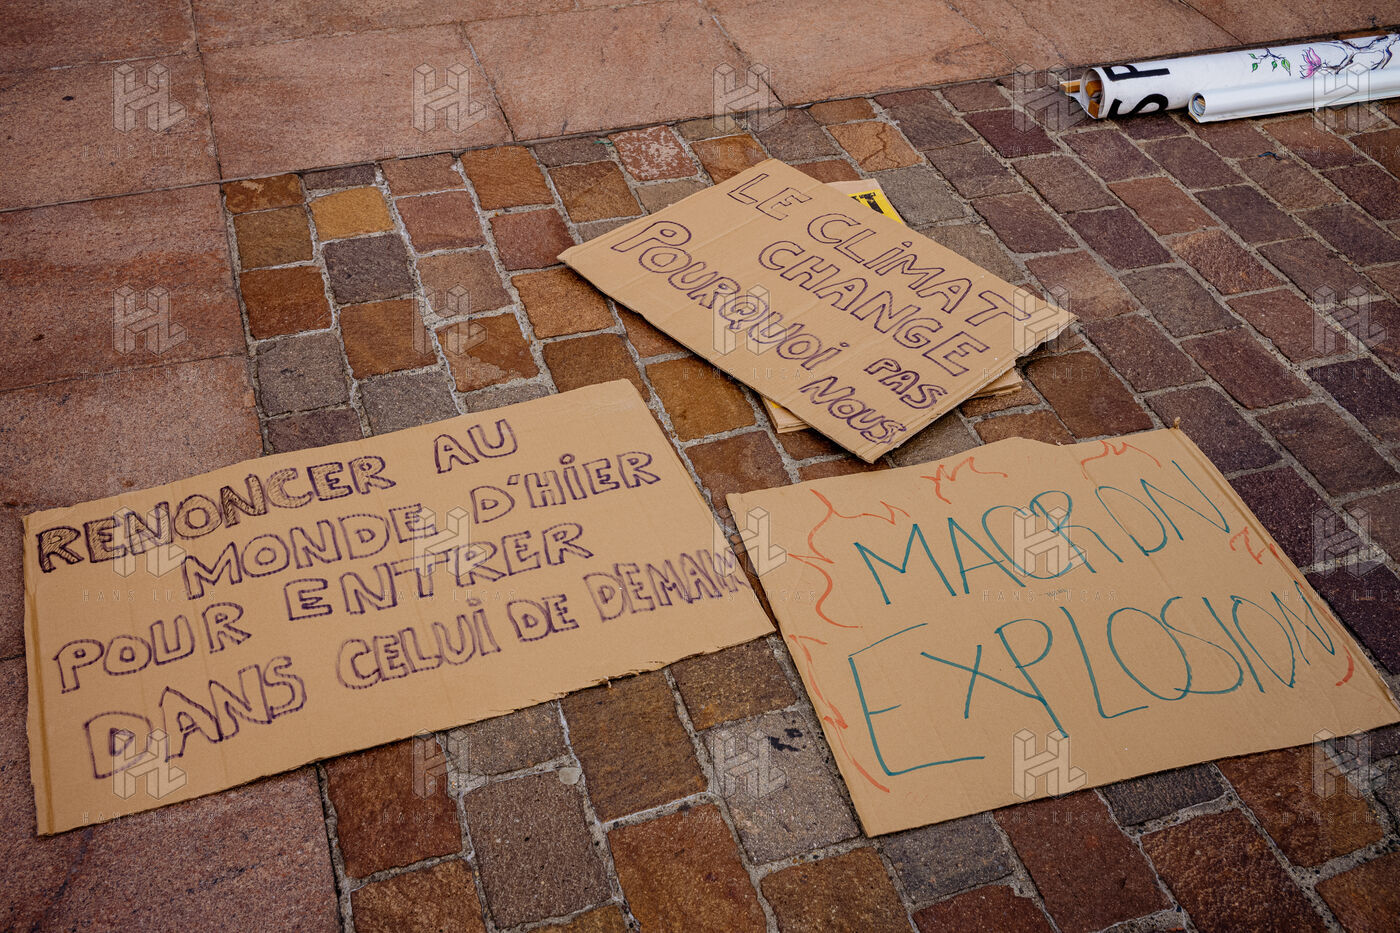 LE CLiMAT
CHANGE
POURQUOi PAS
NOUS
RENONCER AU
MONDE D'HiER
POUR ENTRER
DANS CELUi DE DEMAIN
MACRON
EXPLOSION
S P
HANS LUCAS